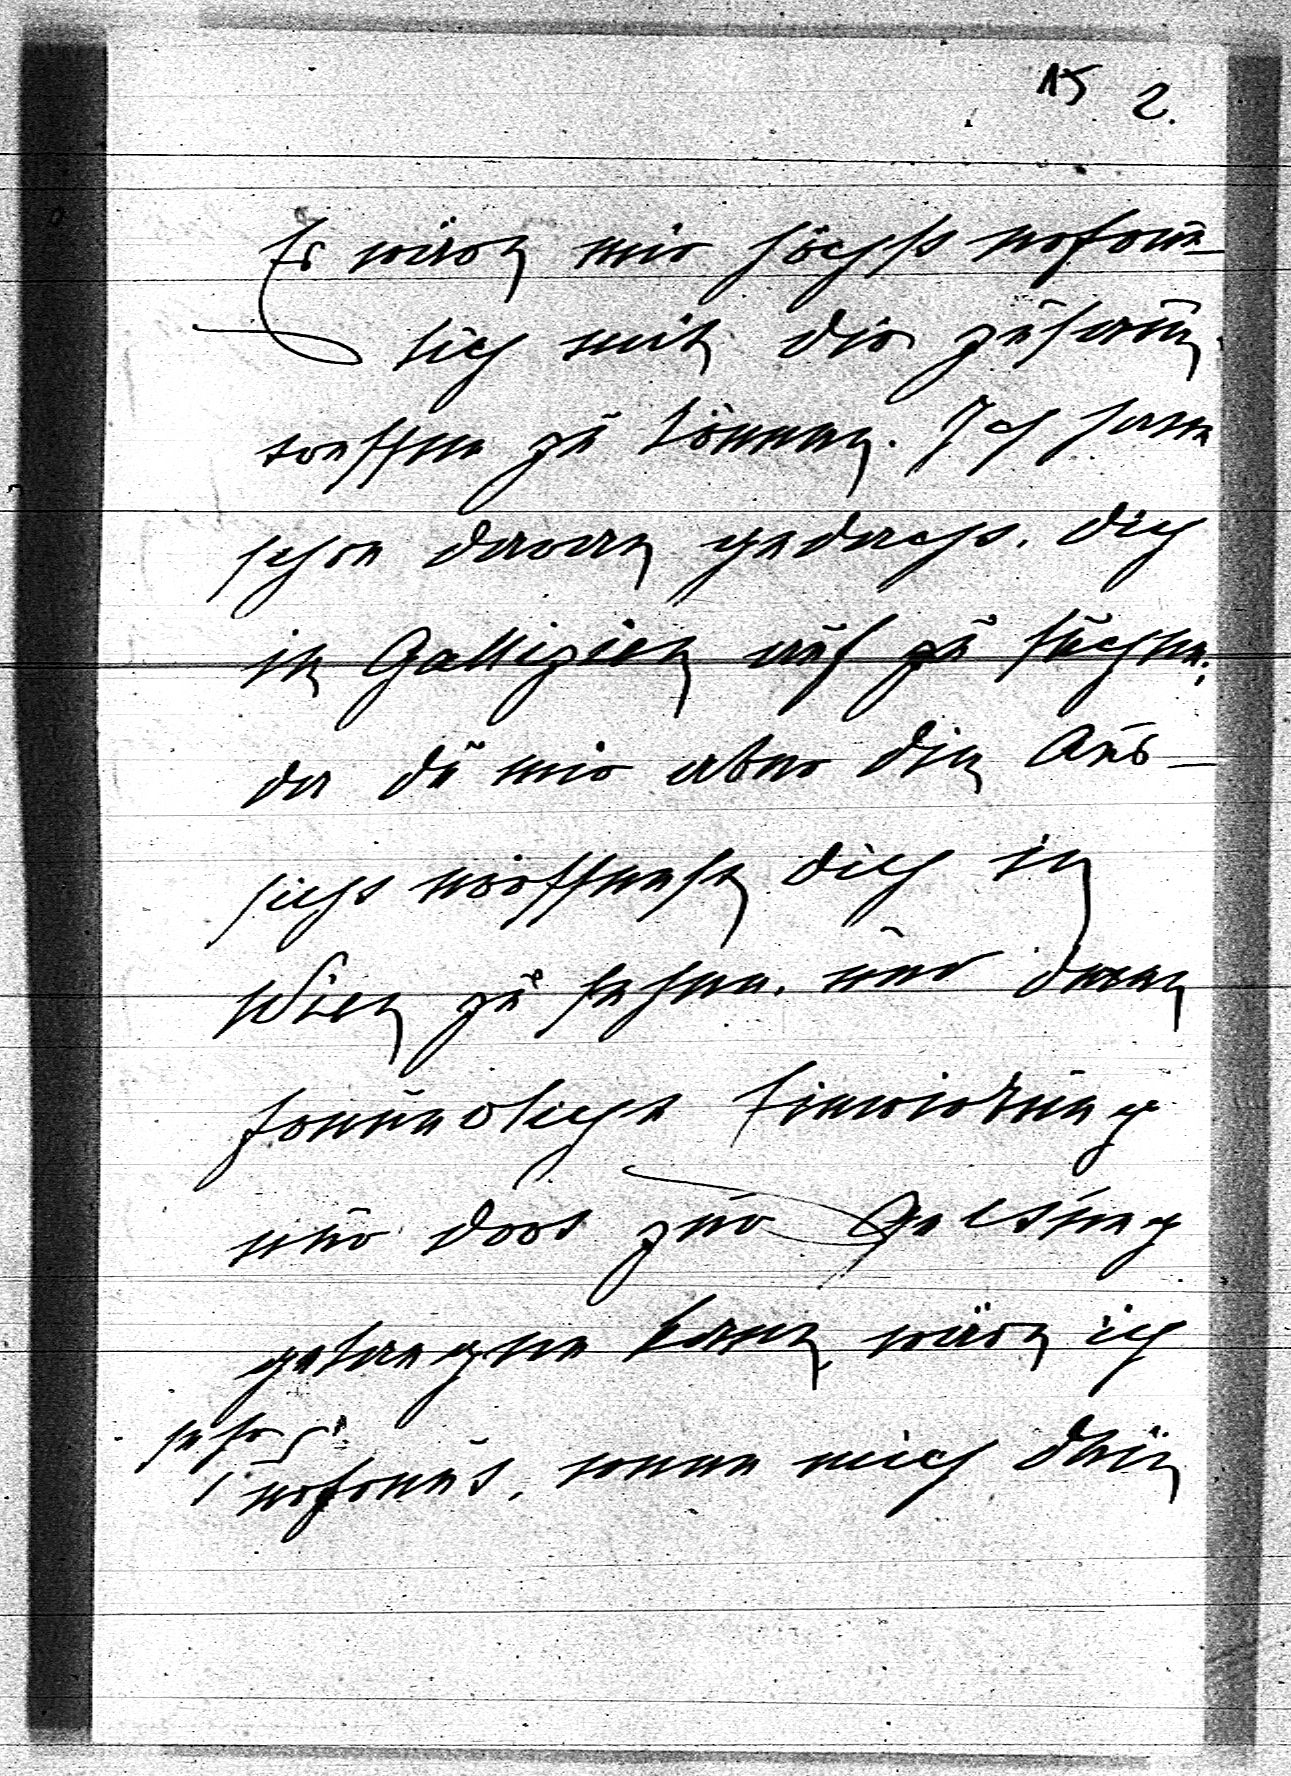 15 2.
Es wäre mir höchst erfreu-
lich mit dir zusammen
treffen zu können. Ich habe
schon daran gedacht, dich
in Gallizien auf zu suchen,
da du mir aber die Aus-
sicht eröffnest, dich in
Wien zu sehen, und deine
freundliche Einwirkung
nur dort zur Geltung
gelangen kann, wäre ich
sehr
erfreut, wenn mich dein